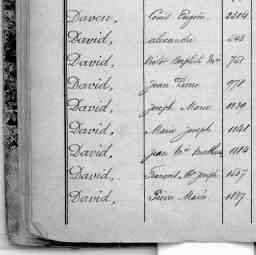 Davon, Louis Eugène
David, Alexandre
David, Victor Baptiste Me 751
David, Jean Pierre 978
David, Joseph Marie 1130
David, Marie Joseph 1141
David, Jean Me 1184
David. François Me Joseph 1457
David, Pierre Marie 1887